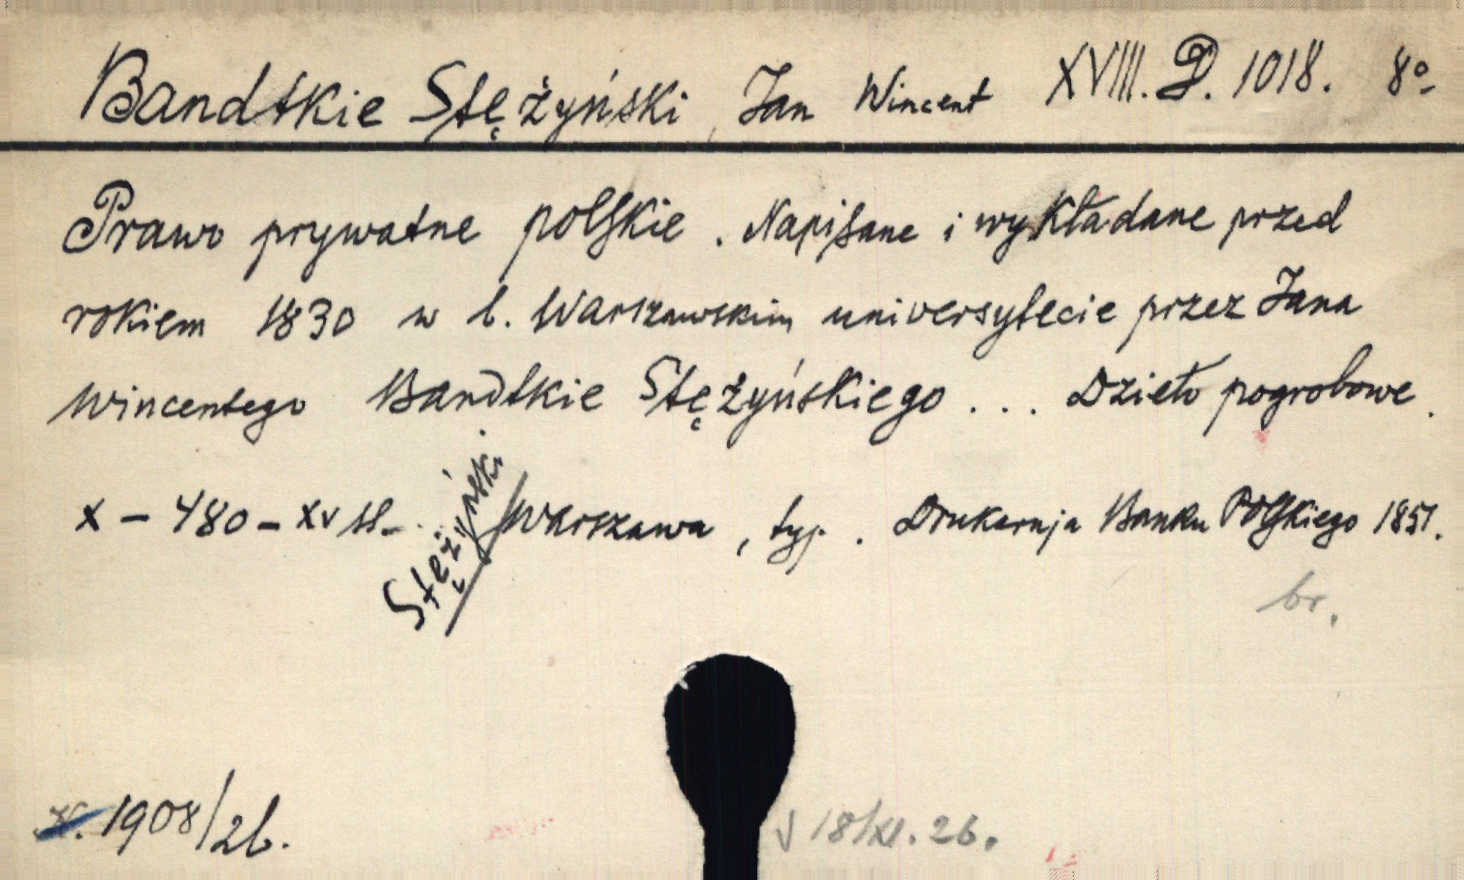 Bandtkie Stężyński, Jan Wincent XVIII. D. 1018. 8°
Prawo prywatne polskie. Napisane i wykładane przed
rokiem 1830 w b. Warszawskim uniwersytecie przez Jana
Wincentego Bandtkie Stężyńskiego... Dzieło pogrobowe.
X – 480 – XV Warszawa, typ. Drukarnja Banku Polskiego 1851.
Stężyński
br.
1908/26.
18/XI. 26.